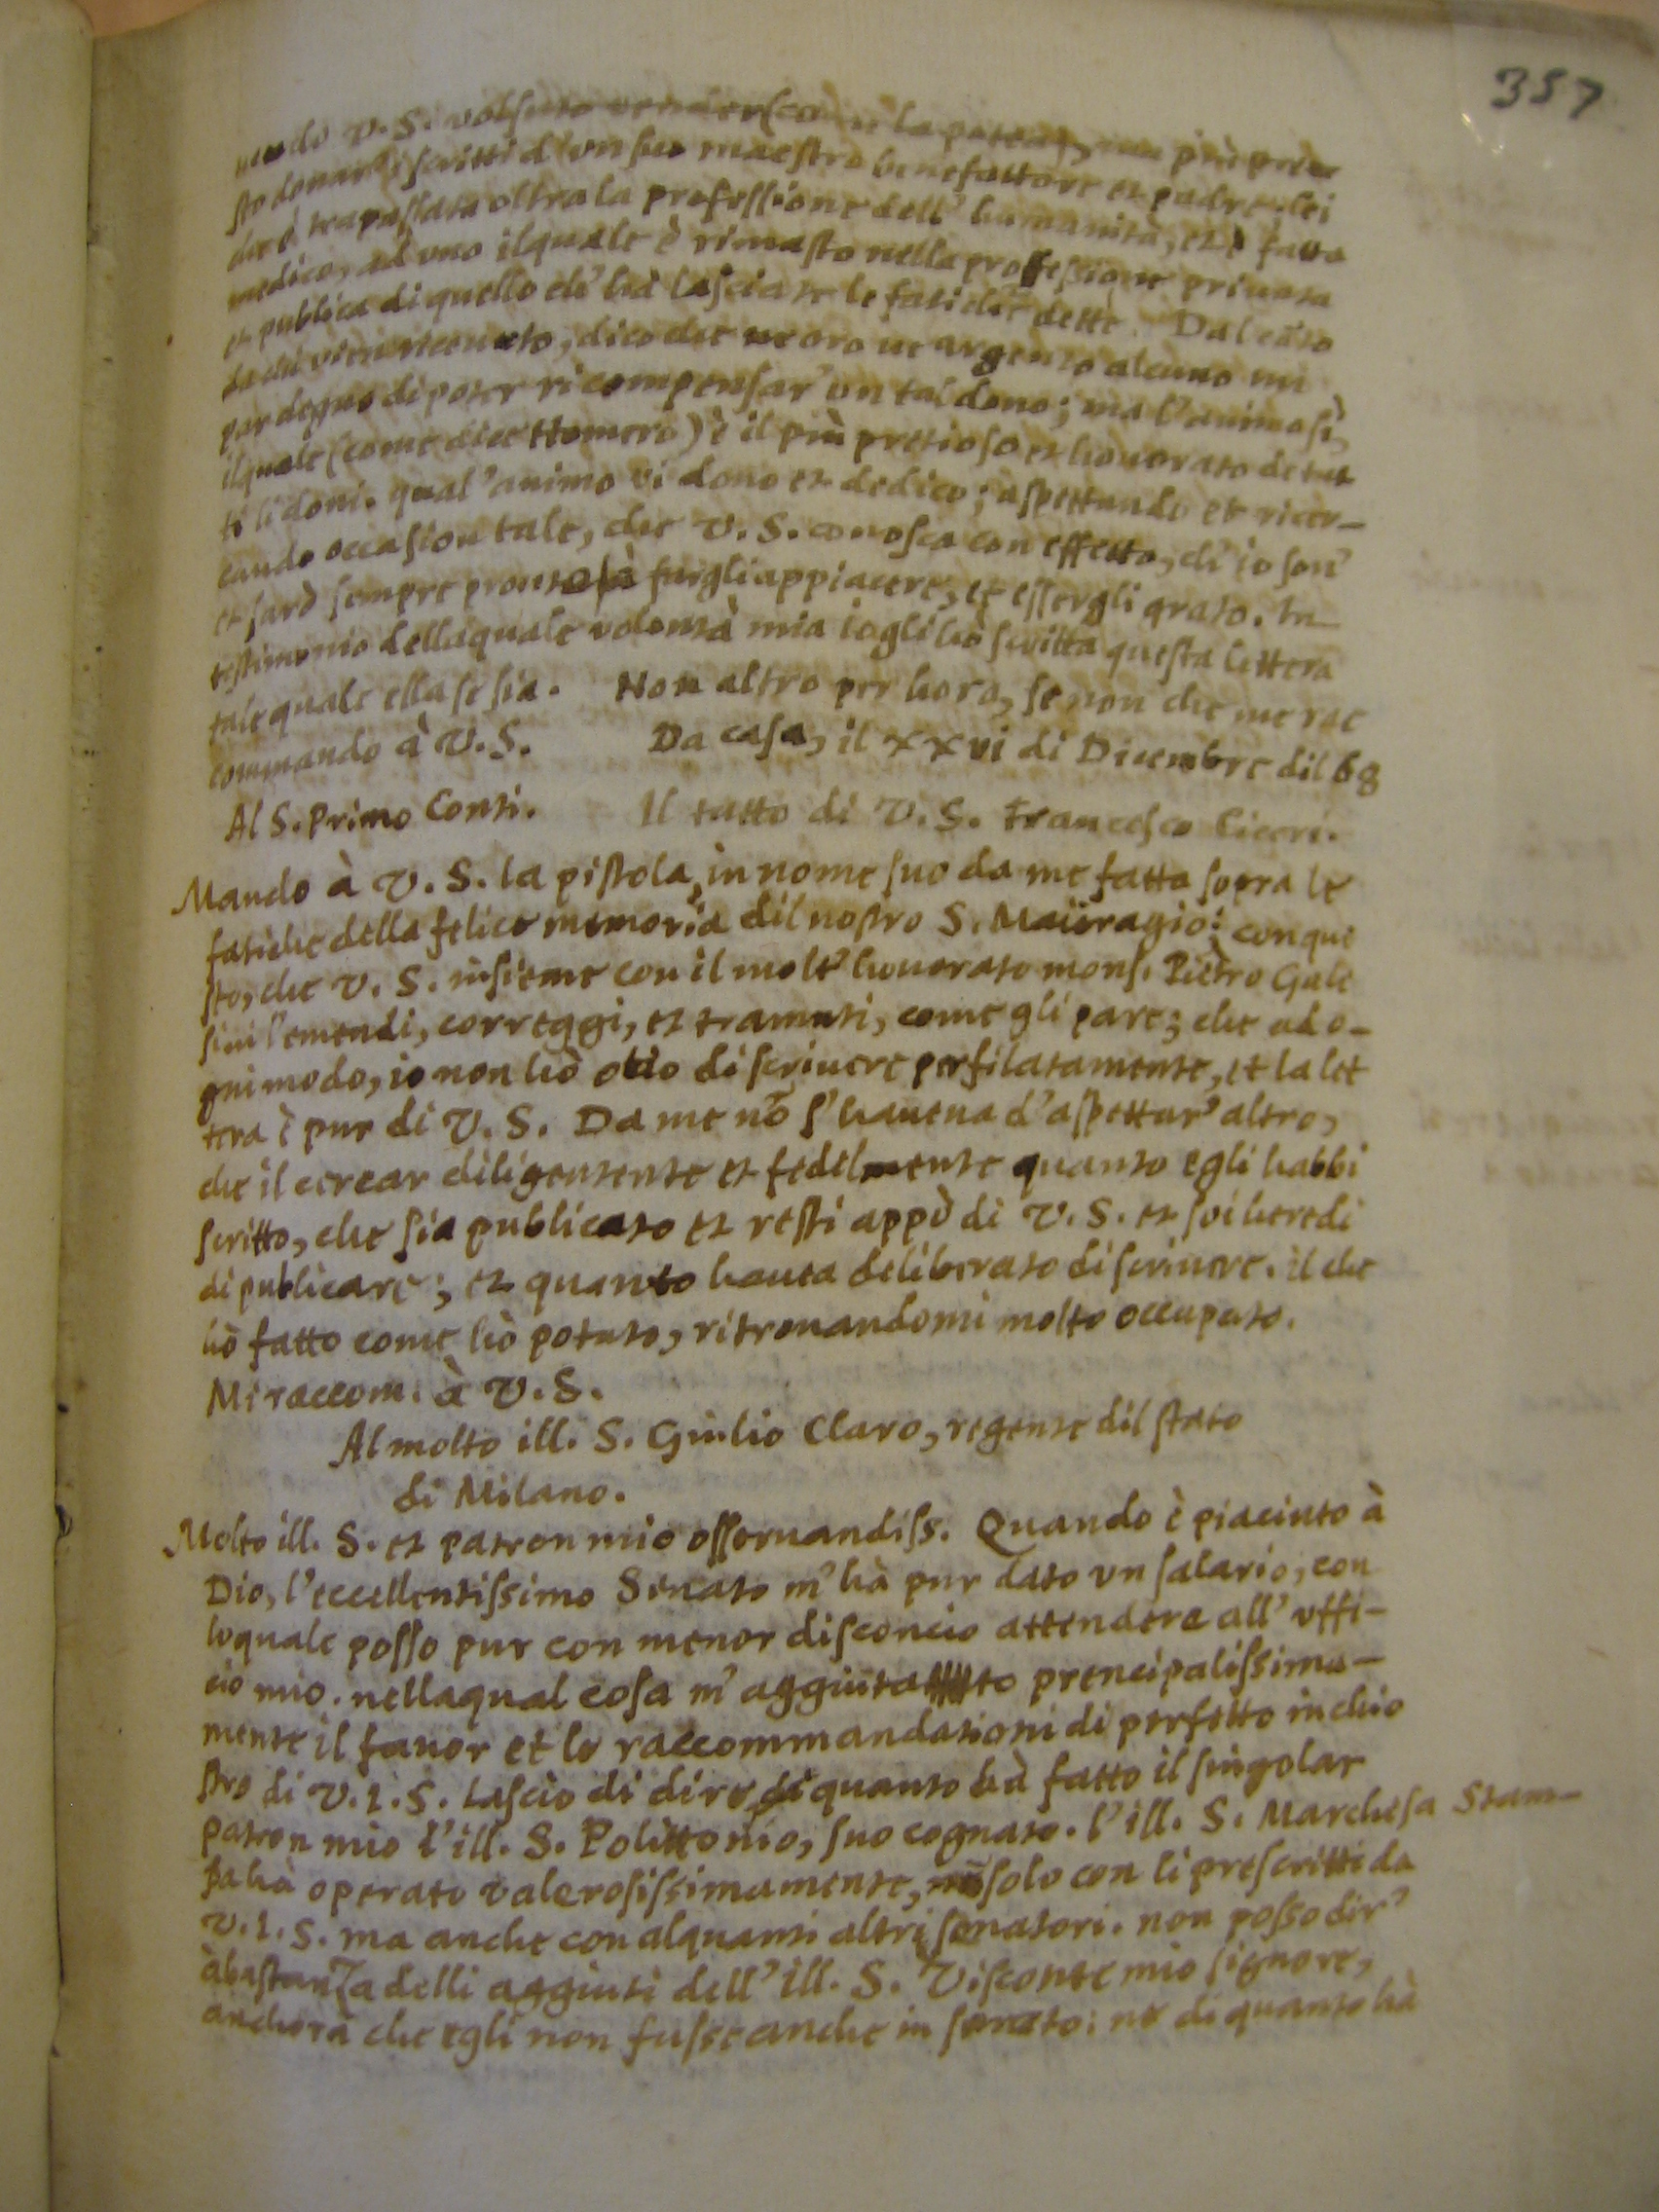 357
uendo V. S. volsuto vender come la poteua, ma più pre
sto donar i scritti d'un suo maestro benefattore et padre. lei
che è trapassata oltra la professione dell'humanità, et è fatto
medico, ad uno ilquale è rimasto nella professione priuata
et publica di quello ch'hà lasciate le fatiche dette. Dal cãto
da chi vien riceuuto, dico che ne oro ne argento alcuno mi
par degno di poter ricompensar' un tal dono; ma l'animo sì,
ilquale (come dice Homero) è il più pretioso et honorato de tut
ti li doni. qual'animo vi dono et dedico; aspettando et ricer-
cando occasion tale, che V. S. conosca con effetto, ch'io son'
et sarò sempre pronto à fargli appiacere, et essergli grato. In
testimonio dellaquale volontà mia io gli hò scritta questa lettera
tale quale ella se sia. Non altro per hora, se non che me rac
commando à V. S. Da casa, il xxvi di Dicembre dil 68
Al S. Primo Conti. Il tutto di V. S. Francesco Ciceri.
Mando à V. S. la pistola, in nome suo da me fatta sopra le
fatiche della felice memoria dil nostro S. Maioragio: con que
sto, che V. S. insieme con il molt' honorato mons. Pietro Gale
sini l'emendi, correggi, et tramuti, come gli pare; che ad o-
gni modo, io non hò otio di scriuere perfilatamente, et la let
tera è pur di V. S. Da me nõ s'haueua d'aspettar' altro,
che il cercar diligentente et fedelmente quanto egli habbi
scritto, che sia publicato et resti appò di V. S. et soi heredi
di publicare; et quanto haueа deliberato di scriuere. il che
hò fatto come hò potuto, ritrouandomi molto occupato.
Mi raccom. à V. S.
Al molto ill. S. Giulio Claro, regente dil stato
di Milano.
Molto ill. S. et patron mio osseruandiss. Quando è piaciuto à
Dio, l'eccellentissimo Senato m'hà pur dato un salario, con
loquale posso pur con menor disconcio attendere all'uffi-
cio mio. nellaqual cosa m'aggiutato prencipalissima-
mente il fauor et le raccommandationi di perfetto inchio
stro di V. I. S. Lascio di dire di quanto hà fatto il singolar
patron mio l'ill. S. Polittonio, suo cognato. l'ill. S. Marchesa Stam-
pa hà operato valerosissimamente, nõ solo con li prescritti da
V. I. S. ma anche con alquanti altri senatori. non posso dir'
àbastanza delli aggiuti dell'ill. S. Visconte mio signore,
anchora che egli non fusse anche in senato: ne di quanto hà